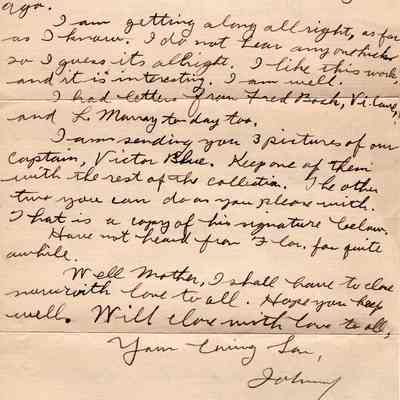 ago.
I am getting along all right, as far
as I know. I do not hear any one kicker
so I guess its allright. I like this work,
and it is interesting. I am well.
I had letters from Fred Bock, Vi.
and L. Murray to day too.
I am sending you 3 pictures of our
Captain, Victor Blue. Keep one of them
with the rest of the collection. The other
two you can do as you please with.
That is a copy of his signature below.
Have not heard from Flor. for quite
awhile.
Well Mother, I shall have to close
now with love to all. Hope you keep
well. Will close with love to all,
Your loving Son,
Johnny